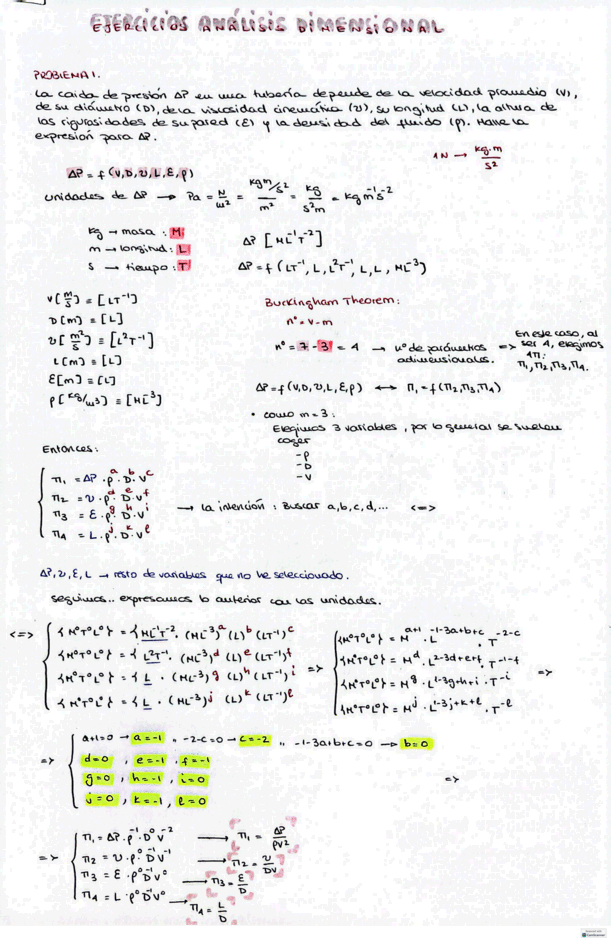 EJERCICIOS ANÁLISIS DIMENSIONAL
PROBLEMA 1.
La caida de presión ΔP en una tubería depende de la velocidad promedio (V),
de su diámetro (D), de la viscosidad cinemática (υ), su longitud (L), la altura de
las rigurosidades de su pared (Ɛ) y la densidad del fluido (ρ). Halle la
expresión para ΔP.
1N → kg·m/s²
ΔP = f(V,D,υ,L,Ɛ,ρ)
unidades de ΔP → Pa = N/m² = (kg m/s²)/m² = kg/(s²m) = kg m⁻¹s⁻²
kg → masa : M
m → longitud : L
s → tiempo : T
ΔP [ML⁻¹T⁻²]
ΔP = f(LT⁻¹, L, L²T⁻¹, L, L, ML⁻³)
V[m/s] = [LT⁻¹]
D[m] = [L]
υ[m²/s] = [L²T⁻¹]
L[m] = [L]
Ɛ[m] = [L]
ρ[kg/m³] = [ML⁻³]
Buckingham Theorem:
nº = v - m
nº = 7 - 3 = 4 → nº de parámetros adimensionales.
=> En este caso, al ser 4, elegimos 4Π: Π₁, Π₂, Π₃, Π₄.
ΔP = f(V,D,υ,L,Ɛ,ρ) ↔ Π₁ = f(Π₂,Π₃,Π₄)
• como m = 3:
Elegimos 3 variables, por lo general se suelen
coger
- ρ
- D
- V
Entonces:
Π₁ = ΔP·ρᵃ·Dᵇ·Vᶜ
Π₂ = υ·ρᵈ·Dᵉ·Vᶠ
Π₃ = Ɛ·ρᵍ·Dʰ·Vⁱ
Π₄ = L·ρʲ·Dᵏ·Vˡ
→ la intención : Buscar a,b,c,d,... <=>
ΔP, υ, Ɛ, L → resto de variables que no he seleccionado.
seguimos.. expresamos lo anterior con las unidades.
<=> {M⁰T⁰L⁰} = {ML⁻¹T⁻²·(ML⁻³)ᵃ (L)ᵇ (LT⁻¹)ᶜ
{M⁰T⁰L⁰} = {L²T⁻¹·(ML⁻³)ᵈ (L)ᵉ (LT⁻¹)ᶠ
{M⁰T⁰L⁰} = {L·(ML⁻³)ᵍ (L)ʰ (LT⁻¹)ⁱ
{M⁰T⁰L⁰} = {L·(ML⁻³)ʲ (L)ᵏ (LT⁻¹)ˡ
=> {M⁰T⁰L⁰} = M^(a+1)·L^(-1-3a+b+c)·T^(-2-c)
{M⁰T⁰L⁰} = M^d·L^(2-3d+e+f)·T^(-1-f)
{M⁰T⁰L⁰} = M^g·L^(1-3g+h+i)·T^(-i)
{M⁰T⁰L⁰} = M^j·L^(1-3j+k+l)·T^(-l)
=>
=> a+1=0 → a=-1 ,, -2-c=0 → c=-2 ,, -1-3a+b+c=0 → b=0
d=0 , e=-1 , f=-1
g=0 , h=-1 , i=0
j=0 , k=-1 , l=0
=>
=> Π₁ = ΔP·ρ⁻¹·D⁰V⁻² → Π₁ = ΔP/(ρV²)
Π₂ = υ·ρ⁰·D⁻¹V⁻¹ → Π₂ = υ/(DV)
Π₃ = Ɛ·ρ⁰D⁻¹V⁰ → Π₃ = Ɛ/D
Π₄ = L·ρ⁰D⁻¹V⁰ → Π₄ = L/D